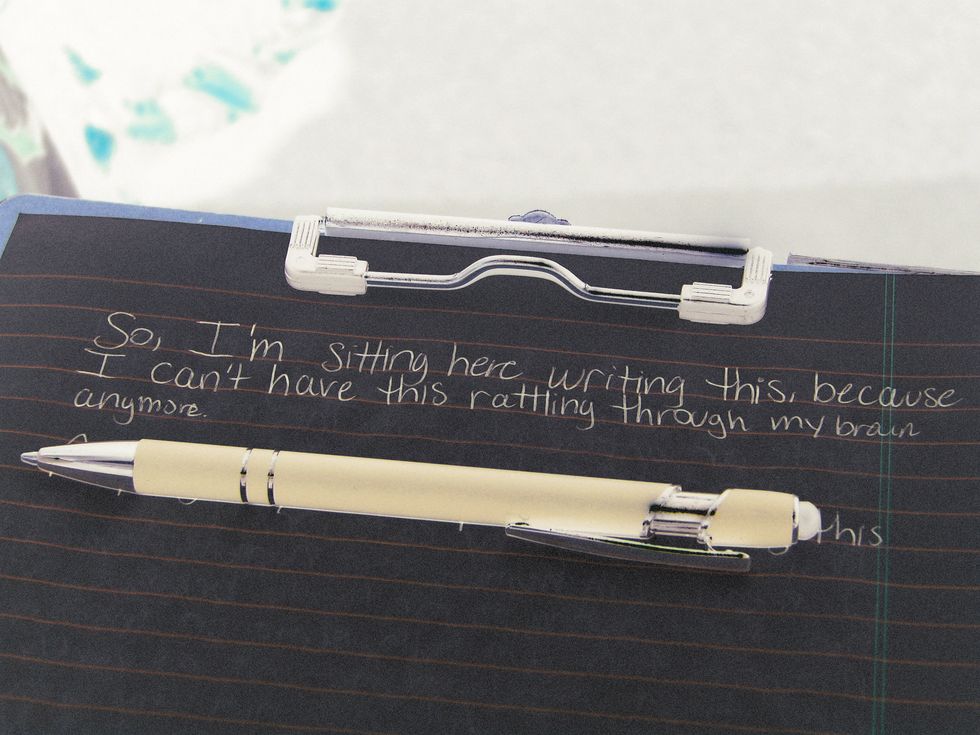 So, I'm sitting here writing this, because
I can't have this rattling through my brain
anymore.
this